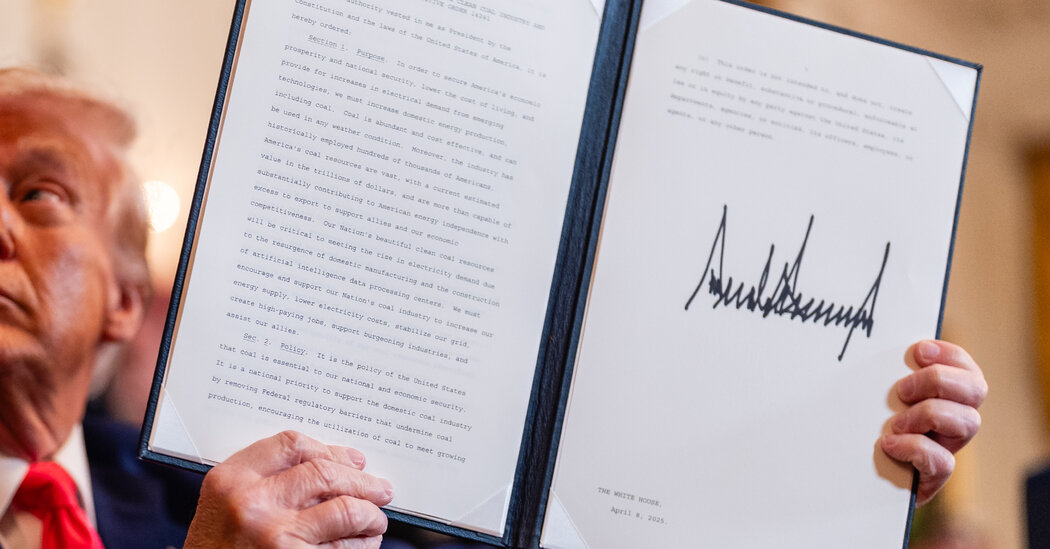 CLEAN COAL INDUSTRY AND
ORDER 14241
authority vested in me as President by the
Constitution and the laws of the United States of America, it is
hereby ordered:
Section 1. Purpose. In order to secure America's economic
prosperity and national security, lower the cost of living, and
provide for increases in electrical demand from emerging
technologies, we must increase domestic energy production,
including coal. Coal is abundant and cost effective, and can
be used in any weather condition. Moreover, the industry has
historically employed hundreds of thousands of Americans.
America's coal resources are vast, with a current estimated
value in the trillions of dollars, and are more than capable of
substantially contributing to American energy independence with
excess to export to support allies and our economic
competitiveness. Our Nation's beautiful clean coal resources
will be critical to meeting the rise in electricity demand due
to the resurgence of domestic manufacturing and the construction
of artificial intelligence data processing centers. We must
encourage and support our Nation's coal industry to increase our
energy supply, lower electricity costs, stabilize our grid,
create high-paying jobs, support burgeoning industries, and
assist our allies.
Sec. 2. Policy. It is the policy of the United States
that coal is essential to our national and economic security.
It is a national priority to support the domestic coal industry
by removing Federal regulatory barriers that undermine coal
production, encouraging the utilization of coal to meet growing
This order is not intended to, and does not, create
any right or benefit, substantive or procedural, enforceable at
law or in equity by any party against the United States, its
departments, agencies, or entities, its officers, employees, or
agents, or any other person.
Donald Trump
THE WHITE HOUSE,
April 8, 2025.